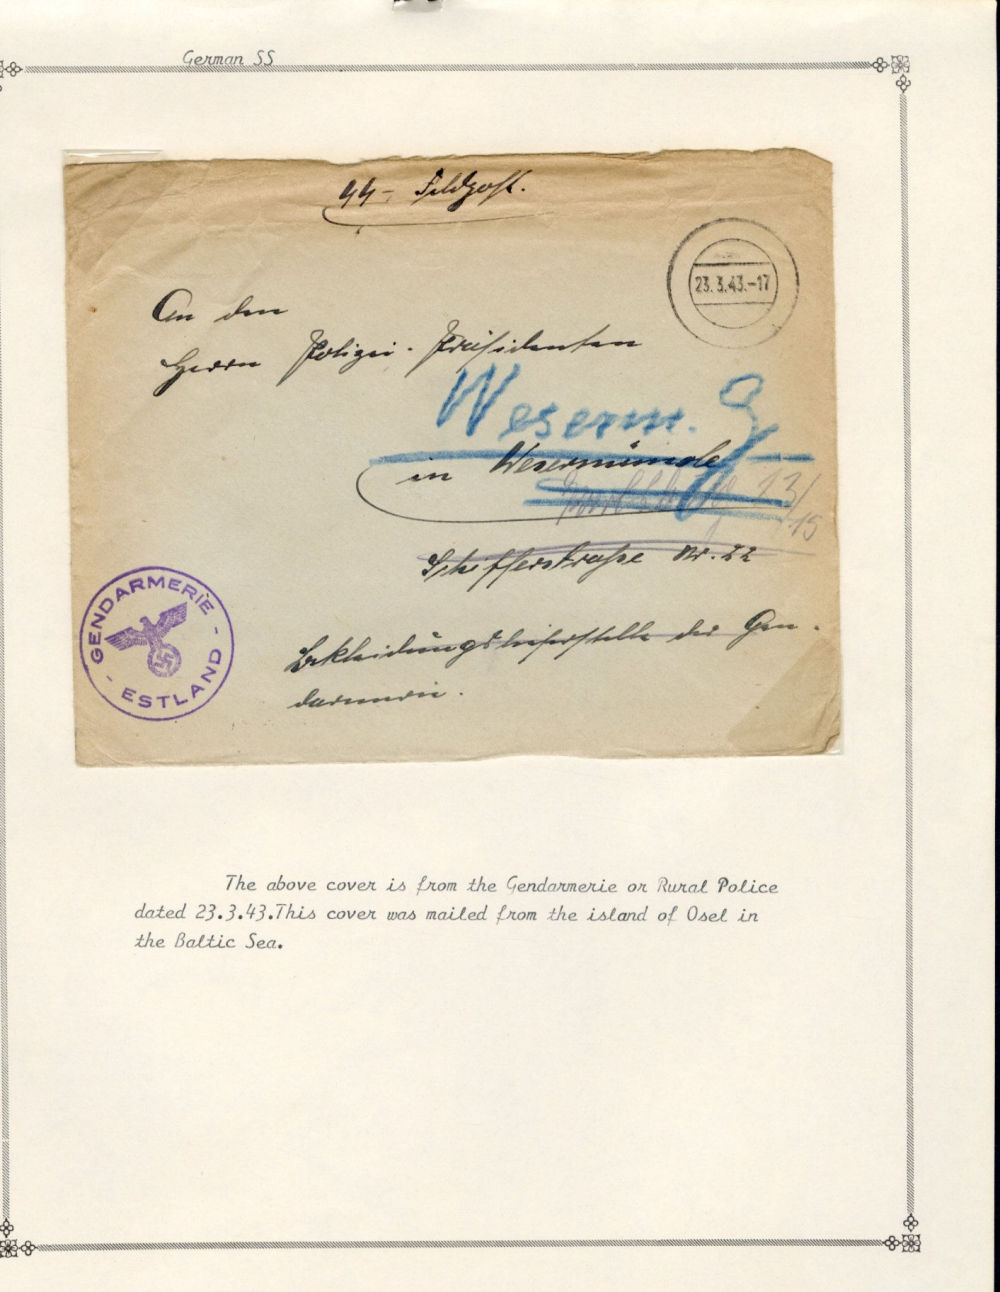 German SS
SS - Feldpost.
23.3.43.-17
An den
Herrn Polizei-Präsidenten
Weserm. G
in Wesermünde
13/15
Schifferstraße Nr. 22
GENDARMERIE - ESTLAND -
Bekleidungslieferstelle der Gen-
darmerie.
The above cover is from the Gendarmerie or Rural Police
dated 23.3.43.This cover was mailed from the island of Osel in
the Baltic Sea.